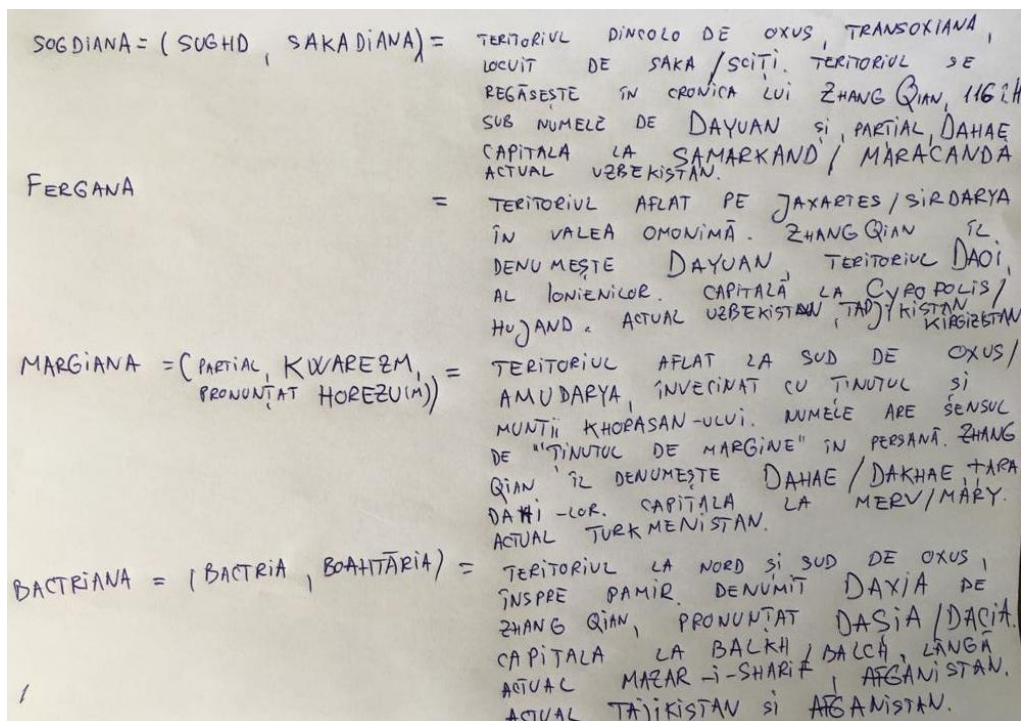 SOGDIANA = ( SUGHD , SAKADIANA) = TERITORIUL DINCOLO DE OXUS, TRANSOXIANA,
LOCUIT DE SAKA / SCIȚI. TERITORIUL SE
REGĂSEȘTE ÎN CRONICA LUI ZHANG QIAN, 116 ÎH
SUB NUMELE DE DAYUAN și, PARTIAL, DAHAE
CAPITALA LA SAMARKAND / MARACANDA
ACTUAL UZBEKISTAN.
FERGANA = TERITORIUL AFLAT PE JAXARTES / SIRDARYA
ÎN VALEA OMONIMĂ. ZHANG QIAN ÎL
DENUMEȘTE DAYUAN, TERITORIUL DAOI,
AL IONIENILOR. CAPITALĂ LA CYROPOLIS /
HUJAND. ACTUAL UZBEKISTAN, TADJYKISTAN
KIRGIZSTAN
MARGIANA = ( PARTIAL, KWAREZM, = TERITORIUL AFLAT LA SUD DE OXUS /
PRONUNȚAT HOREZU(M)) AMUDARYA, ÎNVECINAT CU ȚINUTUL și
MUNȚII KHORASAN-ULUI. NUMELE ARE SENSUL
DE "ȚINUTUL DE MARGINE" ÎN PERSANĂ. ZHANG
QIAN ÎL DENUMEȘTE DAHAE / DAKHAE ȚARA
DAHI-LOR. CAPITALA LA MERV / MARY.
ACTUAL TURKMENISTAN.
BACTRIANA = ( BACTRIA , BOAHTĀRIA) = TERITORIUL LA NORD și SUD DE OXUS,
ÎNSPRE PAMIR. DENUMIT DAXIA DE
ZHANG QIAN, PRONUNȚAT DAȘIA / DAÇIA.
CAPITALA LA BALKH / BALCH, LÂNGĂ
ACTUAL MAZAR-i-SHARIF, AFGANISTAN.
ACTUAL TAJIKISTAN și AFGANISTAN.
1